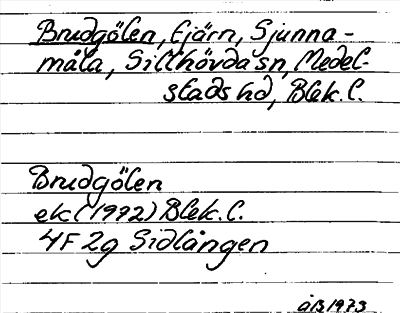 Brudgölen, tjärn, Sjunna-
måla, Sillhövda sn, Medel-
stads hd, Blek. l.
Brudgölen
ek (1972) Blek. l.
4F 2g Sidlången
ÅB 1973